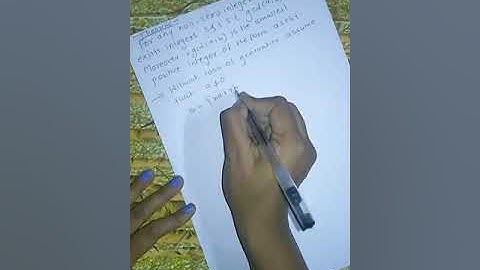 Theorem
For any non-zero integers
exists integers s & t
Moreover gcd(a,b) is the smallest
positive integer of the form as+bt
→ Without loss of generality assume
that a≠0